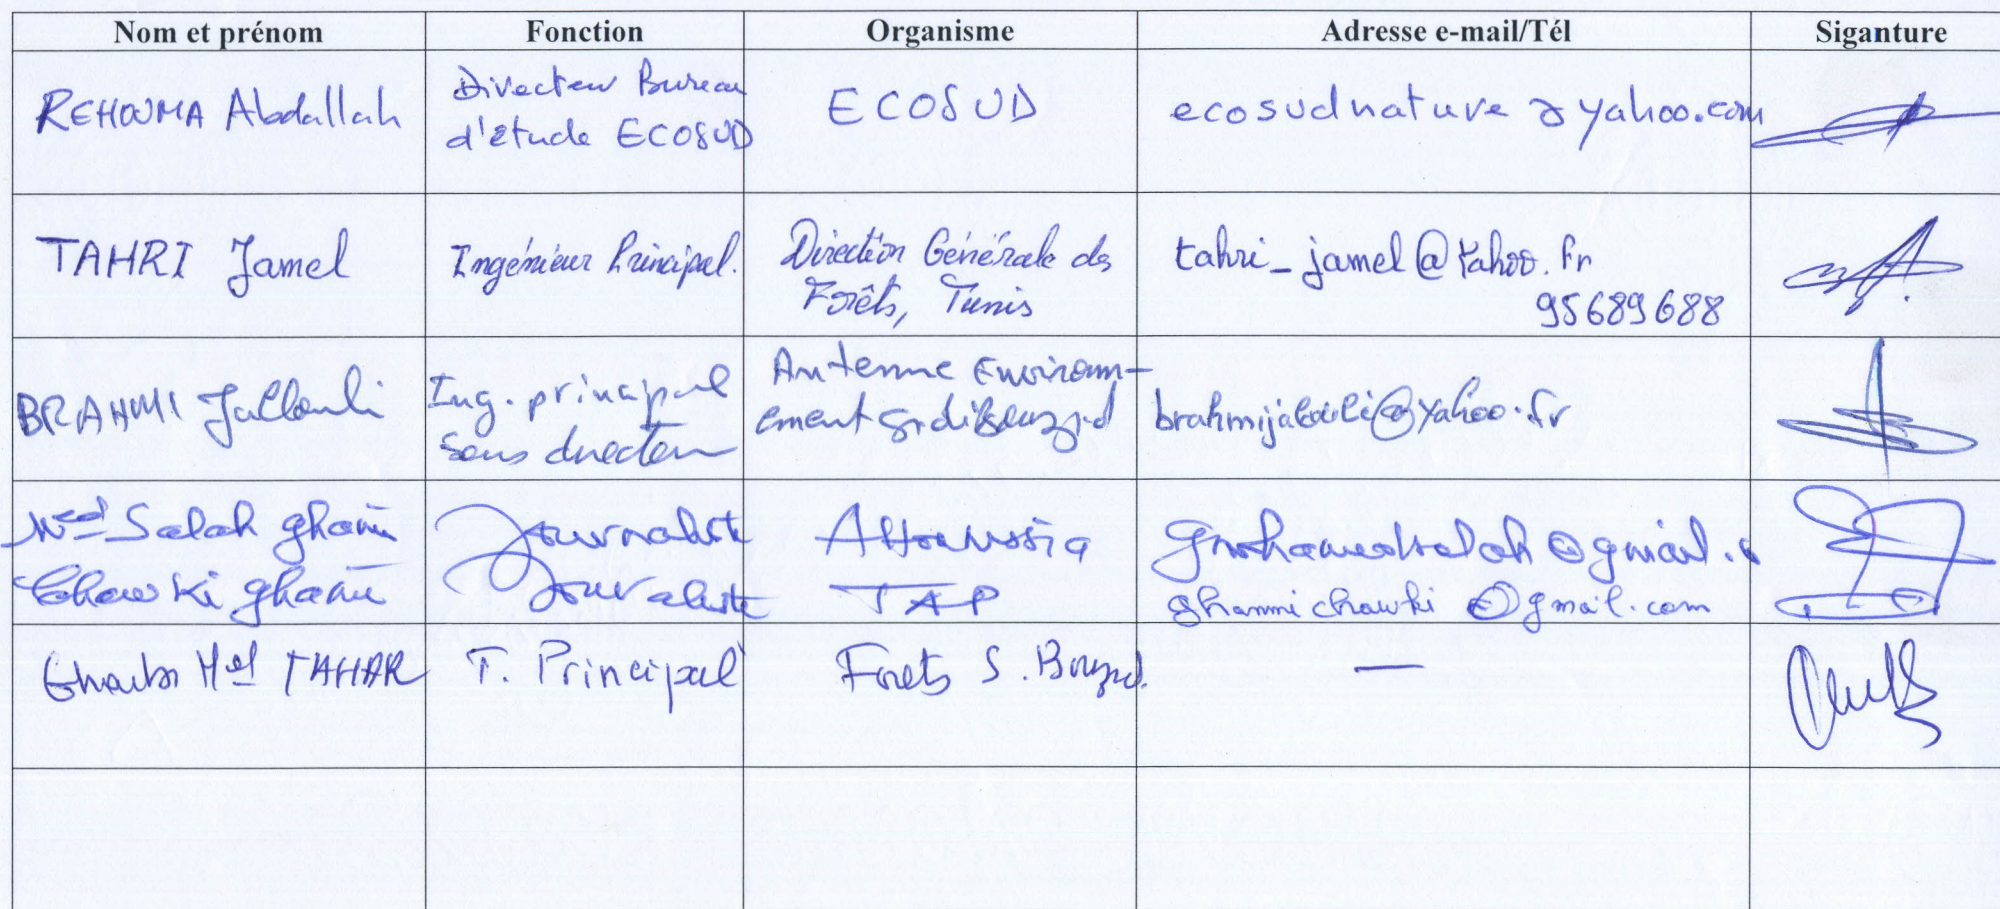 Nom et prénom Fonction Organisme Adresse e-mail/Tél Siganture
REHOUMA Abdallah Directeur Bureau d'étude ECOSUD ECOSUD ecosudnature@yahoo.com
TAHRI Jamel Ingénieur Principal. Direction Générale des Forêts, Tunis tahri_jamel@Yahoo.fr 95689688
BRAHMI Jallouli Ing. principal sous directeur Antenne Environn-ement sidi Bouzid @yahoo.fr
Med Salah ghanmi Journaliste Attounissia @gmail.
Chawki ghanmi Journaliste TAP ghammichawki@gmail.com
Med TAHAR T. Principal Forets S. Bouzid. —